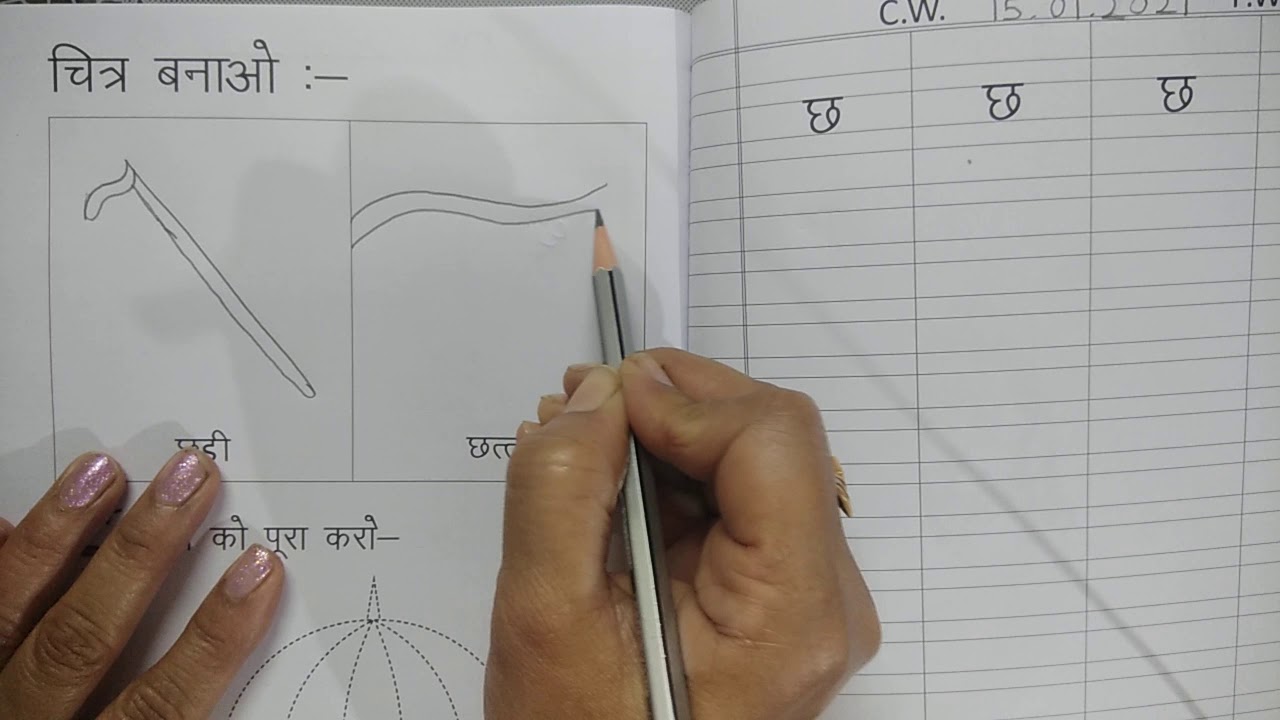 चित्र बनाओ :–
छड़ी
को पूरा करो–
C.W. 15.01.2021
छ छ छ